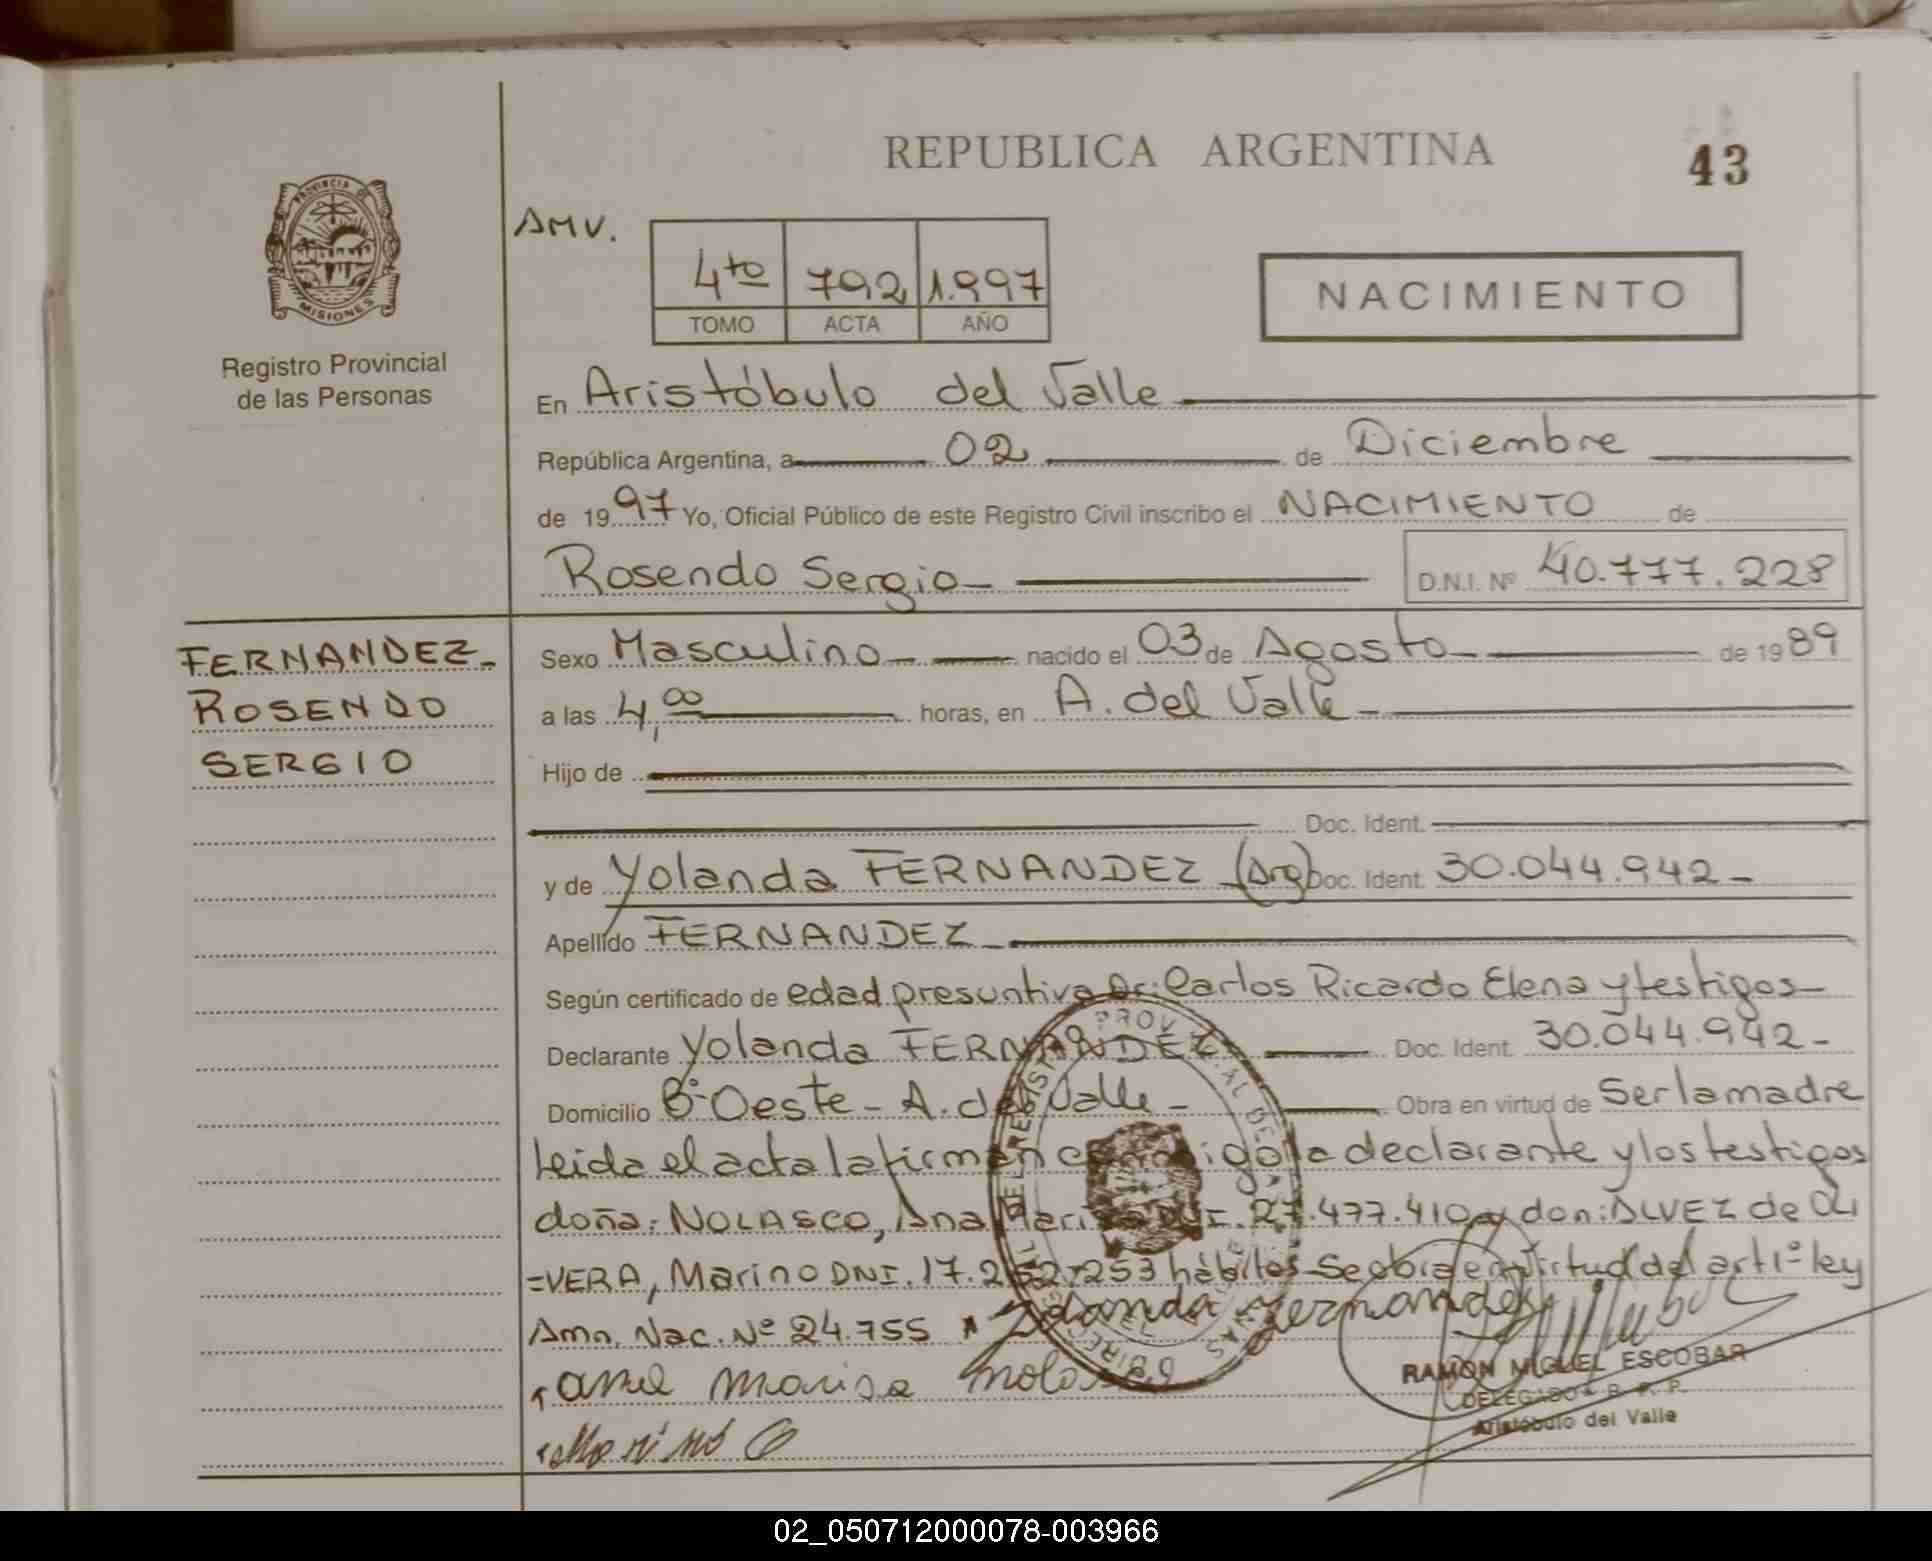 REPUBLICA ARGENTINA
43
PROVINCIA DE MISIONES
Registro Provincial
de las Personas
AMV.
4to 792 1.997
TOMO ACTA AÑO
NACIMIENTO
En Aristóbulo del Valle
República Argentina, a 02 de Diciembre
de 1997 Yo, Oficial Público de este Registro Civil inscribo el NACIMIENTO de
Rosendo Sergio D.N.I. Nº 40.777.228
FERNANDEZ
ROSENDO
SERGIO
Sexo Masculino nacido el 03 de Agosto de 1989
a las 4,00 horas, en A. del Valle
Hijo de
Doc. Ident.
y de Yolanda FERNANDEZ (Arg) Doc. Ident. 30.044.942
Apellido FERNANDEZ
Según certificado de edad presuntiva Dr. Carlos Ricardo Elena y testigos
Declarante Yolanda FERNANDEZ Doc. Ident. 30.044.942
Domicilio Bº Oeste - A. del Valle Obra en virtud de Ser la madre
Leida el acta la firman conmigo la declarante y los testigos
doña: NOLASCO, Ana Marisa DNI. 27.477.410 y don: ALVEZ de OLI
=VERA, Marino DNI. 17.252.253 hábiles - Se obra en virtud del art 1º ley
Amn. Nac. Nº 24.755 Yolanda Fernandes
ana marisa nolasco
RAMON MIGUEL ESCOBAR
DELEGADO R. P. P.
Aristóbulo del Valle
02_050712000078-003966